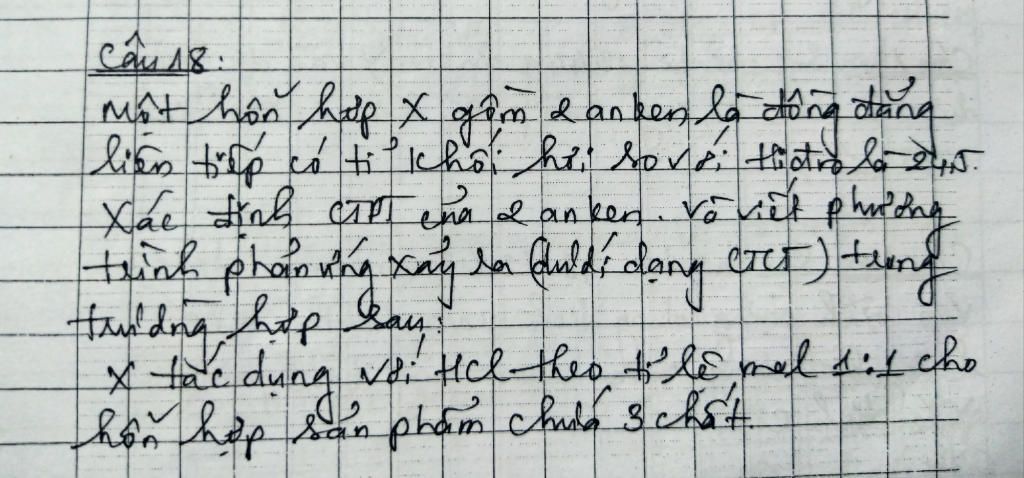 Câu 18:
Một hỗn hợp X gồm 2 anken là đồng đẳng
liên tiếp có tỉ khối hơi so với hiđro là 24,5.
Xác định CTPT của 2 anken. Và viết phương
trình phản ứng xảy ra (dưới dạng CTCT) trong
trường hợp sau:
X tác dụng với HCl theo tỉ lệ mol 1:1 cho
hỗn hợp sản phẩm chứa 3 chất.